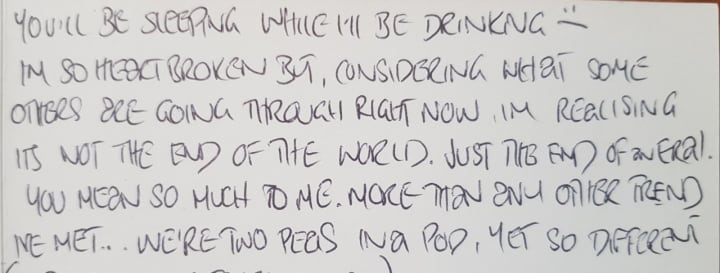 YOU'LL BE SLEEPING WHILE I'LL BE DRINKING :-
IM SO HEARTBROKEN BUT, CONSIDERING WHAT SOME
OTHERS ARE GOING THROUGH RIGHT NOW, IM REALISING
ITS NOT THE END OF THE WORLD. JUST THE END OF AN ERA!.
YOU MEAN SO MUCH TO ME. MORE THAN ANY OTHER FREND
IVE MET... WE'RE TWO PEAS IN A POD, YET SO DIFFERENT